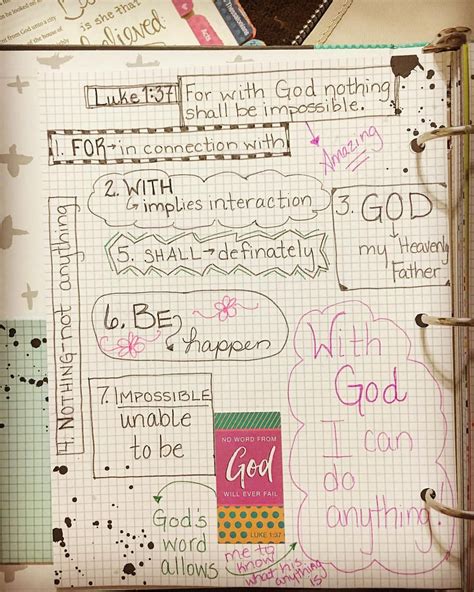 believed:
Acts
Luke 1:37
For with God nothing
shall be impossible.
Amazing
1. FOR→in connection with
2. WITH
implies interaction
3. GOD
my Heavenly
Father
4. NOTHING not anything
5. SHALL→definately
6. BE
happen
7. IMPOSSIBLE
unable
to be
With
God
I can
do
anything!
NO WORD FROM
God
WILL EVER FAIL
LUKE 1:37
God's
word
allows
me to
know
what his
anything
is